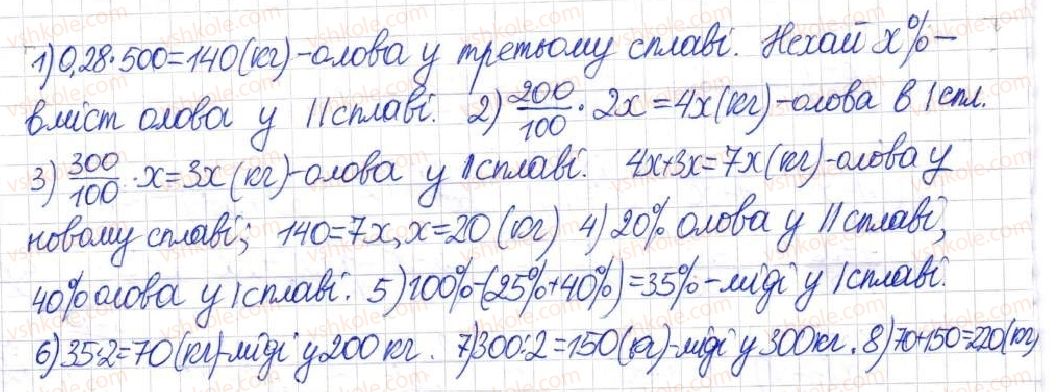 1) 0,28·500=140(кг)-олова у третьому сплаві. Нехай x%-
вміст олова у II сплаві. 2) 200/100 · 2x = 4x(кг)-олова в I спл.
3) 300/100 · x=3x(кг)-олова у II сплаві. 4x+3x=7x(кг)-олова у
новому сплаві; 140=7x, x=20 (кг) 4) 20% олова у II сплаві,
40% олова у I сплаві. 5) 100%-(25%+40%)=35%-міді у I сплаві.
6) 35·2=70(кг)-міді у 200 кг. 7) 300:2=150(кг)-міді у 300 кг. 8) 70+150=220(кг)